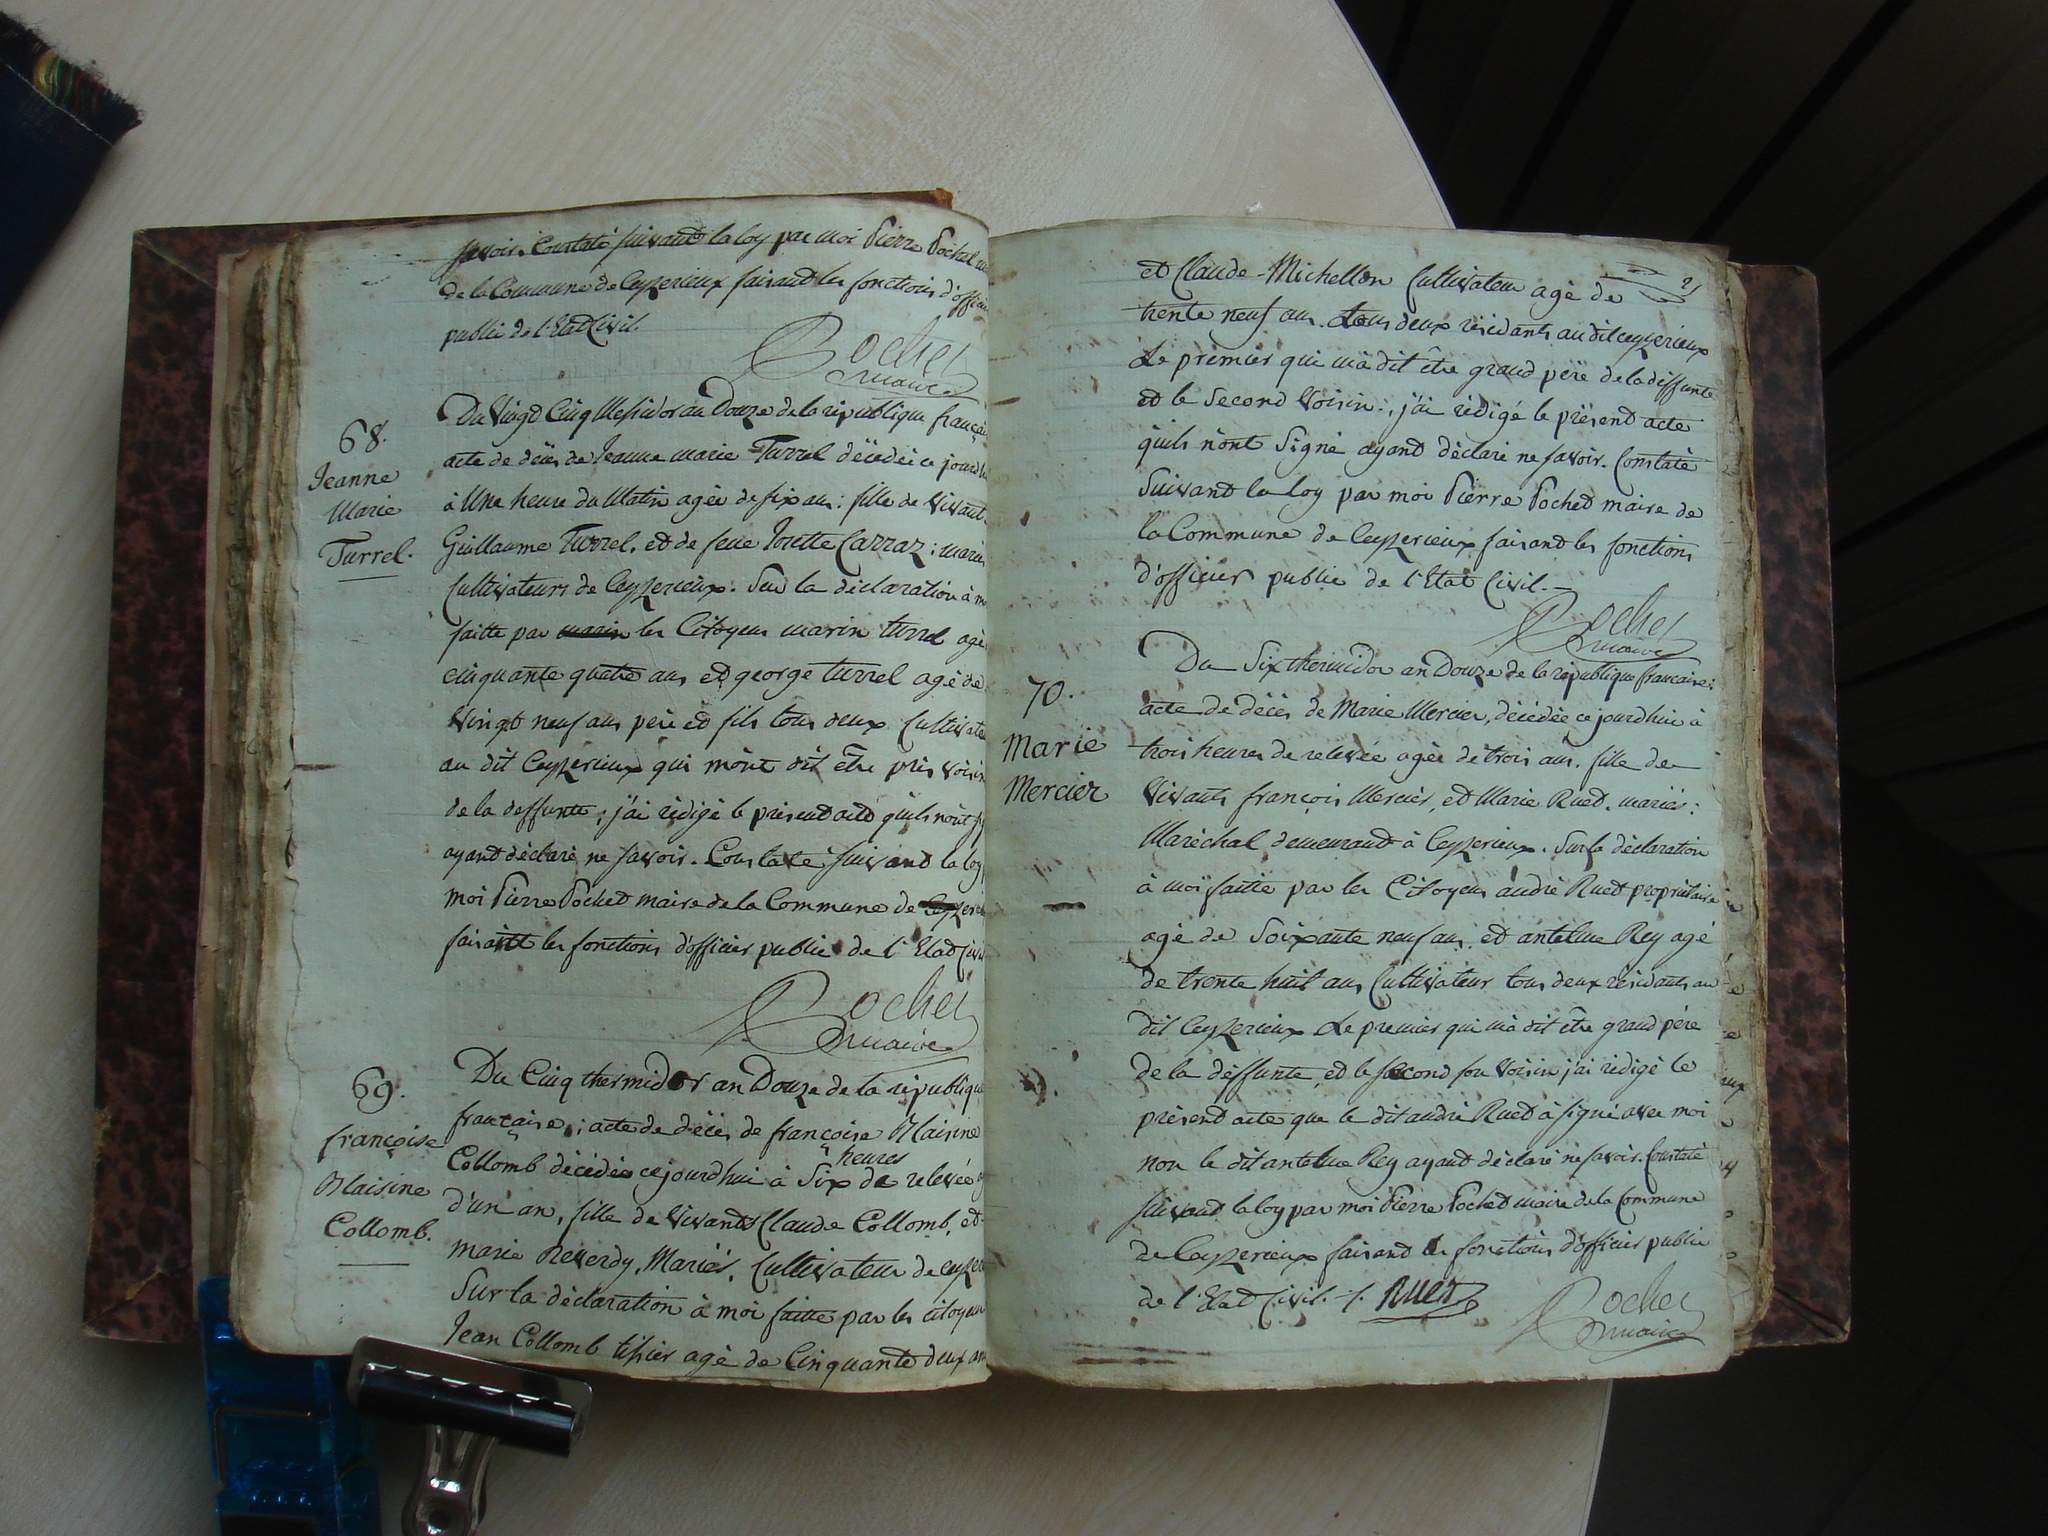 savoir. Constaté suivant la loy par moi Pierre Pochet
de la Commune de Ceyzerieux faisant les fonctions d'officier
public de l'Etat Civil.
Pochet
maire
68.
Jeanne
Marie
Turrel.
Du Vingt Cinq Messidor an Douze de la république françai
acte de décès de Jeanne marie Turrel décédée ce jourd'h
à Une heure du Matin agée de six ans : fille de Vivant
Guillaume Turrel, et de feue Josette Carraz : mariés
Cultivateurs de Ceyzerieux. Sur la déclaration à m
faitte par marin les Citoyens marin turrel agé
cinquante quatre ans et george turrel agé de
Vingt neuf ans père et fils tous deux Cultivate
au dit Ceyzerieux qui m'ont dit être près voisin
de la deffunte ; j'ai rédigé le présent acte qu'ils n'ont
ayant déclaré ne savoir. Constaté suivant la loy
moi Pierre Pochet maire de la Commune de Ceyzerie
faisant les fonctions d'officier public de l'Etat Civil
Pochet
maire
69.
françoise
Blaisine
Collomb.
Du Cinq thermidor an Douze de la république
française ; acte de décès de françoise Blaisine
heures
Collomb décédée ce jourdhui à Six de relevée
d'un an, fille de Vivants Claude Collomb, et
marie Reverdy, Mariés, Cultivateur de ceyzer
Sur la déclaration à moi faitte par les citoyens
Jean Collomb tissier agé de Cinquante deux ans
et Claude Michellon Cultivateur agé de
trente neuf ans. tous deux résidants au dit ceyzerieux
Le premier qui m'a dit être grand père de la diffunte
et le Second Voisin ; j'ai rédigé le présent acte
qu'ils n'ont Signé ayant déclaré ne savoir. Constaté
Suivant la loy par moi Pierre Pochet maire de
la Commune de Ceyzerieux faisant les fonctions
d'officier public de l'Etat Civil.
Pochet
maire
70.
Marie
Mercier
Du Six thermidor an Douze de la république francaise :
acte de décès de Marie Mercier, décédée ce jourdhui à
trois heures de relevée agée de trois ans. fille de
Vivants françois Mercier, et Marie Ruet. mariés :
Maréchal demeurant à Ceyzerieux. Sur la déclaration
à moi faitte par les Citoyens andré Ruet propriétaire
agé de Soixante neuf ans et antelme Rey agé
de trente huit ans Cultivateur tous deux résidants au
dit Ceyzerieux Le premier qui m'a dit être grand père
de la deffunte, et le second son Voisin j'ai rédigé le
présent acte que le dit andré Ruet à signé avec moi
non le dit antelme Rey ayant déclaré ne savoir. Constaté
suivant la loy par moi Pierre Pochet maire de la Commune
de Ceyzerieux faisant les fonctions d'officier public
de l'Etat Civil. Ruet
Pochet
maire